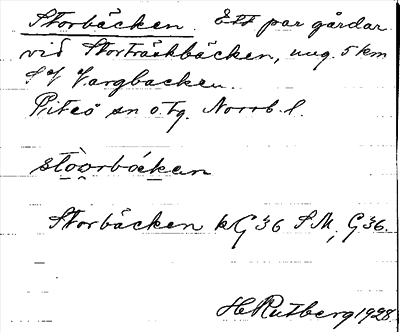 Storbäcken. Ett par gårdar
vid Storträskbäcken, ung. 5 km
SV Vargbacken.
Piteå sn o. tg. Norrb. l.
stòorbäckan
Storbäcken kG36 SM, G36.
H Rutberg 1928